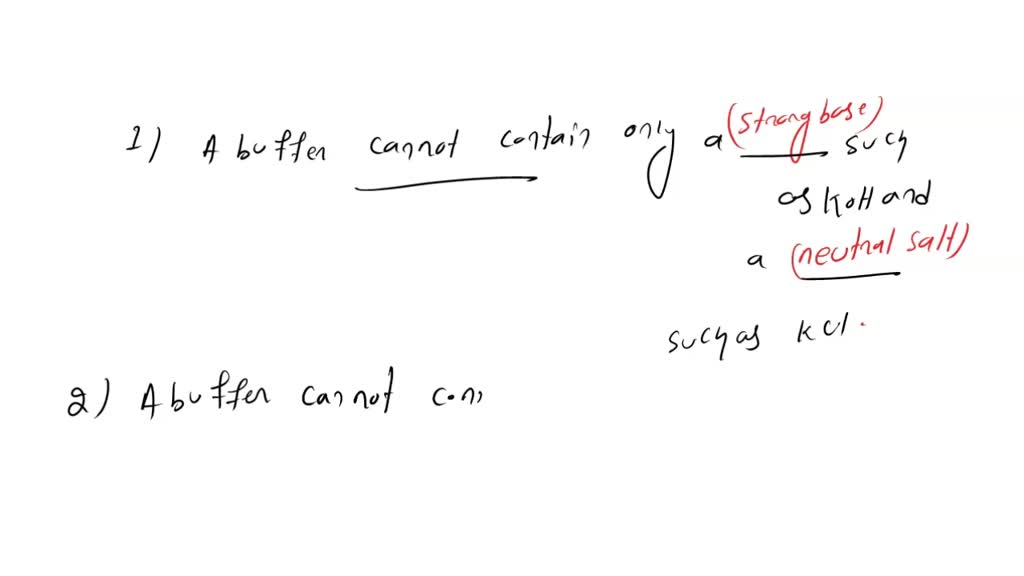 1) A buffer cannot contain only a (strong base) such
as KOH and
a (neutral salt)
such as KCl.
2) A buffer cannot con